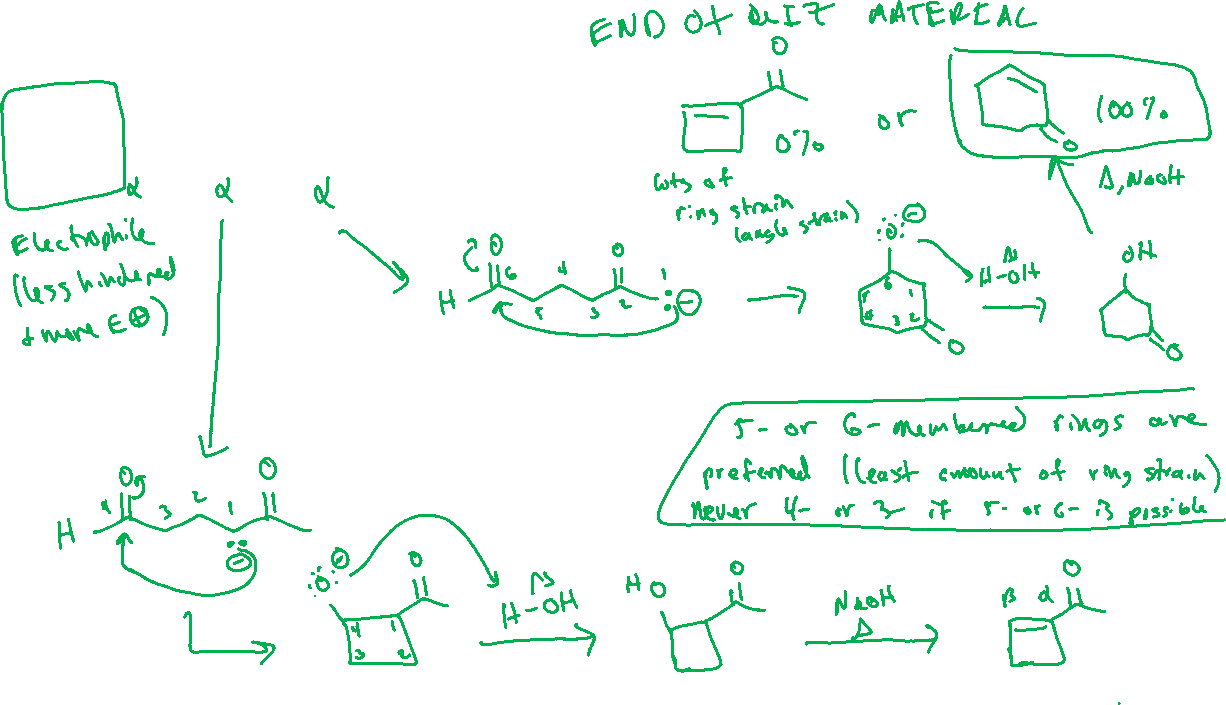 END Of QUIZ MATEREAL
O
or
100%
0%
O
α
α
α
Lots of
ring strain
(angle strain)
Δ, NaOH
Electrophile
(less hindered
+ more E⊕)
O
O
1
6
4
H
5
3
2
:⊖
:O:⊖
5
6
1
4
3
2
O
Δ
H-OH
OH
O
5- or 6-membered rings are
preferred (least amount of ring strain)
Never 4- or 3- if 5- or 6- is possible
O
O
4
3
2
1
H
⊖
:O:⊖
O
4
1
3
2
H-OH
HO
O
NaOH
Δ
β
α
O